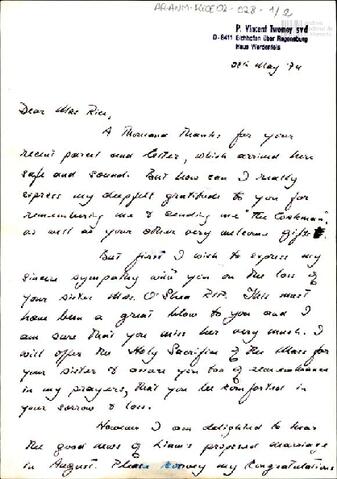 AR-ANM-RICE02-028-1/2
P. Vincent Twomey svd
D-8411 Eichhofen über Regensburg
Haus Werdenfels
May 74
Dear Mrs Rice,
A thousand thanks for your
recent parcel and letter, which arrived here
safe and sound. But how can I really
express my deepfelt gratitude to you for
remembering me & sending me "The Corkman"
as well as your other very welcome gifts.
But first I wish to express my
sincere sympathy with you on the loss of
your sister Mrs. O'Shea RIP. This must
have been a great blow to you and I
am sure that you miss her very much. I
will offer the Holy Sacrifice of the Mass for
your sister & assure you too of remembrance
in my prayers, that you be comforted in
your sorrow & loss.
However I am delighted to hear
the good news of Liam's proposed marriage
in August. Please convey my congratulations